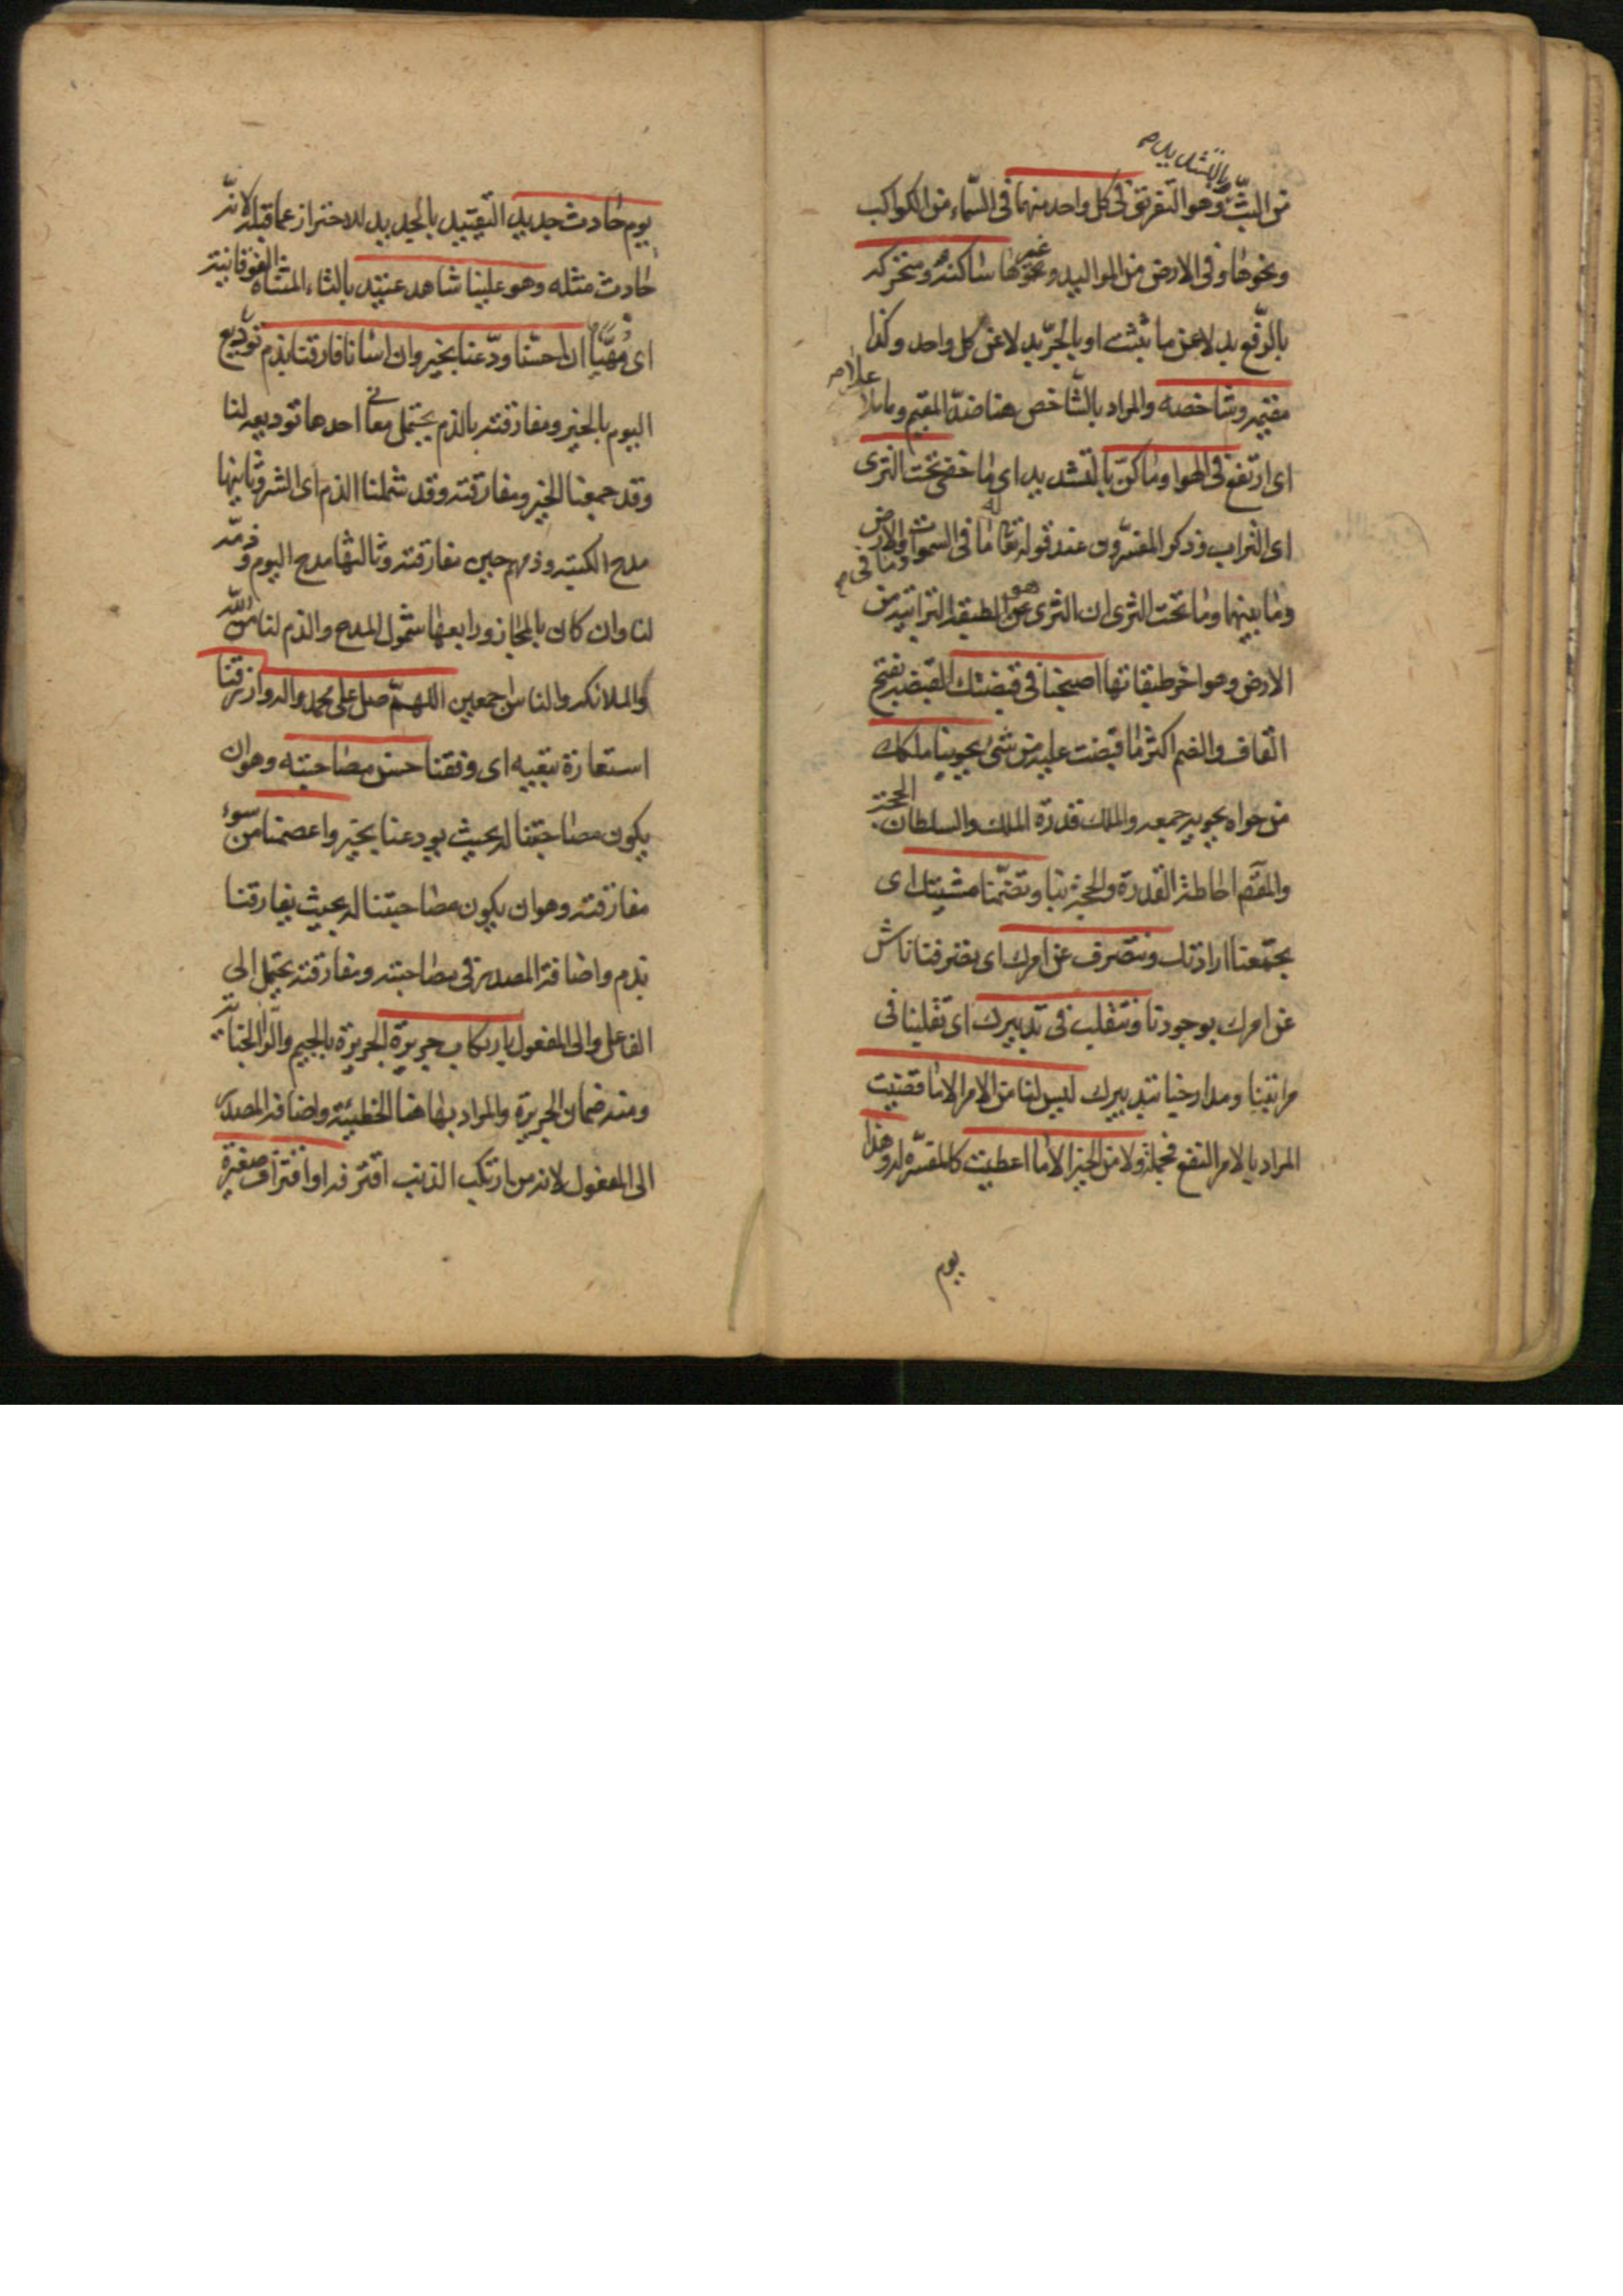 بالتشديد م
من البثّ وهو التفريق فى كل واحد منهما فى السّماء من الكواكب
ونحوها وفى الارض من المواليد وغيرها ساكنه ومتحركه
بالرّفع بدلا عن ما بثثت او بالجرّ بدلا عن كل واحد وكذا
مقيمه وشاخصه والمراد بالشّاخص هنا ضدّ المقيم وما علا
اى ارتفع فى الهوا وما كنّ بالتشديد اى ما خفى تحت الثرى
اى التراب وذكر المفسّرون عند قوله تعا له ما فى السموات وما فى الارض
وما بينهما وما تحت الثرى ان الثرى هو الطبقة الترابيّة من
الارض وهو اخر طبقاتها اصبحنا فى قبضتك القبضة بفتح
القاف والضم اكثر ما قبضت عليه من شئ يحوينا ملكك
من حواه يحويه جمعه والملك قدرة الملك والسلطان الحجة
والمعنى احاطة القدرة والحجة بنا وتضمّنا مشيتك اى
يجتمعنا ارادتك ونتصرف عن امرك اى تصرفنا ناش
عن امرك بوجودنا ونتقلب فى تدبيرك اى تقلبنا فى
مراتبنا ومدار حياتنا بتدبيرك ليس لنا من الامر الا ما قضيت
المراد بالامر النفع فجملة ولا من الخير الا ما اعطيت كالمفسّرة له وهذا
يوم
يوم حادث جديد التقييد بالجديد للاحتراز عما قبله لانّه
حادث مثله وهو علينا شاهد عتيد بالتاء المثناة الفوقانية
اى مهيّأ ان احسنّا ودّعنا بخير وان اسأنا فارقنا بذم توديع
اليوم بالخير ومفارقته بالذم يحتمل معانى احدها توديعه لنا
وقد جمعنا الخير ومفارقته وقد شملنا الذم اى الشر وثانيها
مدح الكتبة وذمهم حين مفارقته وثالثها مدح اليوم وذمّه
لنا وان كان بالمجاز ورابعها شمول المدح والذم لنا من اللّه
والملائكة والناس اجمعين اللهمّ صل على محمد واله وارزقنا
استعارة تبعيه اى وفقنا حسن مصاحبته وهو ان
يكون مصاحبتنا له بحيث يودعنا بخير واعصمنا من سوء
مفارقته وهو ان يكون مصاحبتنا له بحيث يفارقنا
بذم واضافة المصدر فى مصاحبته ومفارقته يحتمل الى
الفاعل والى المفعول بارتكاب جريرة الجريرة بالجيم والرّا الجناية
ومنه ضمان الجريرة والمراد بها هنا الخطيئة واضافة المصدر
الى المفعول لانه من ارتكب الذنب اقترفه او اقتراف صغيرة